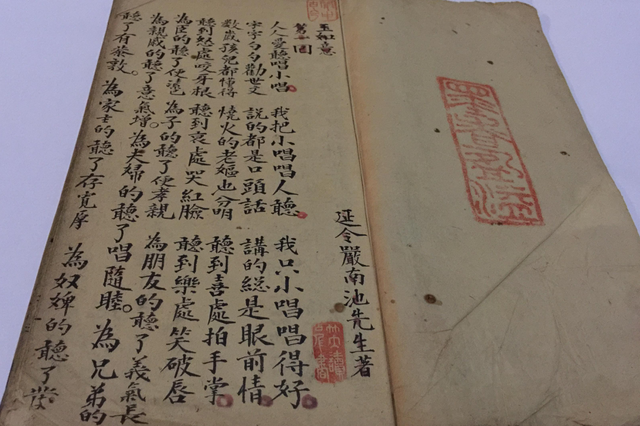 延令嚴南池先生著
人人愛聽唱小唱 我把小唱唱人聽 我只小唱唱得好
字字句句勸世文 說的都是口頭話 講的総是眼前情
數歲孩兒都懂得 燒火的老嫗也分明 聽到善處拍手掌
聽到怒處咬牙根 聽到哀處哭紅臉 聽到樂處笑破唇
為臣的聽了便 為子的聽了便孝親 為朋友的聽了義氣長
為親戚的聽了意氣增。為夫婦的聽了唱隨睦。為兄弟的
聽了有恭敬。為家主的聽了存寬厚 為奴婢的聽了發